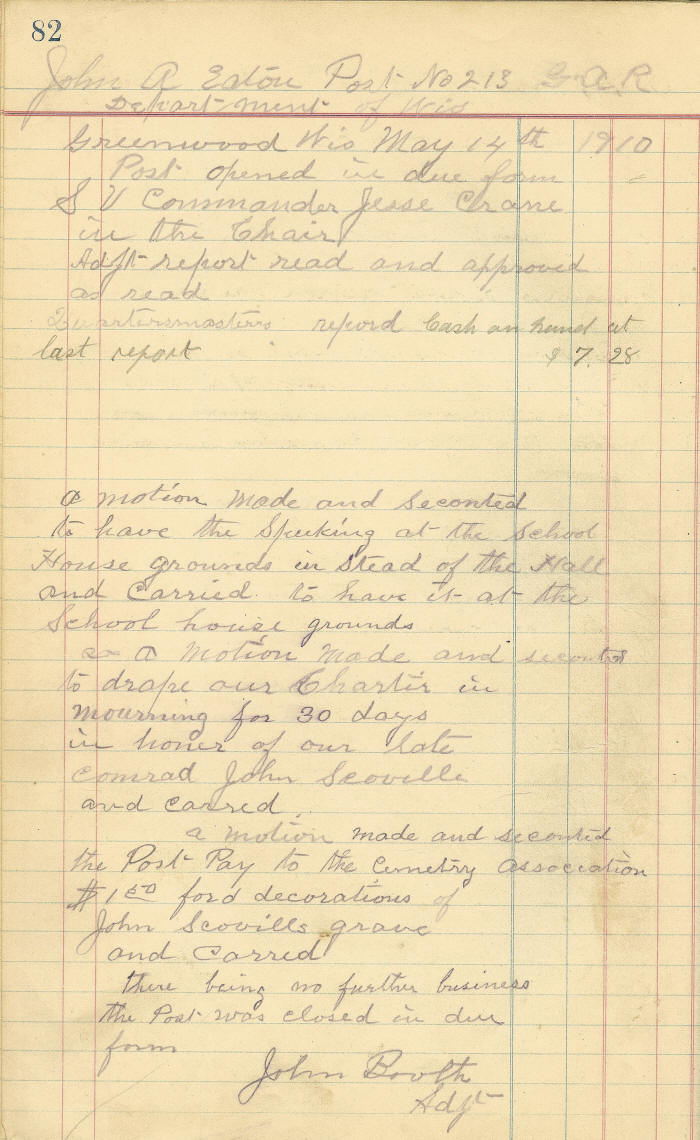 82
John A Eaton Post No 213 G. A. R
Depart ment of Wis
Greenwood Wis May 14th 1910
Post opened in due form
S V Commander Jesse Crane
in the Chair
Adjt report read and approved
as read
Quartersmasters repord Cash on hand at
last report $ 7. 28
a motion made and seconted
to have the Speeking at the School
House grounds in stead of the Hall
and Carried to have it at the
School house grounds
a Motion Made and seconted
to drape our Charter in
mourning for 30 days
in honer of our late
comrad John Scoville
and carred
a motion made and seconted
the Post Pay to the Cemetry Association
$1 50 ford decorations of
John Scovills grave
and Carred
there being no further business
the Post was closed in due
form
John Booth
Adjt